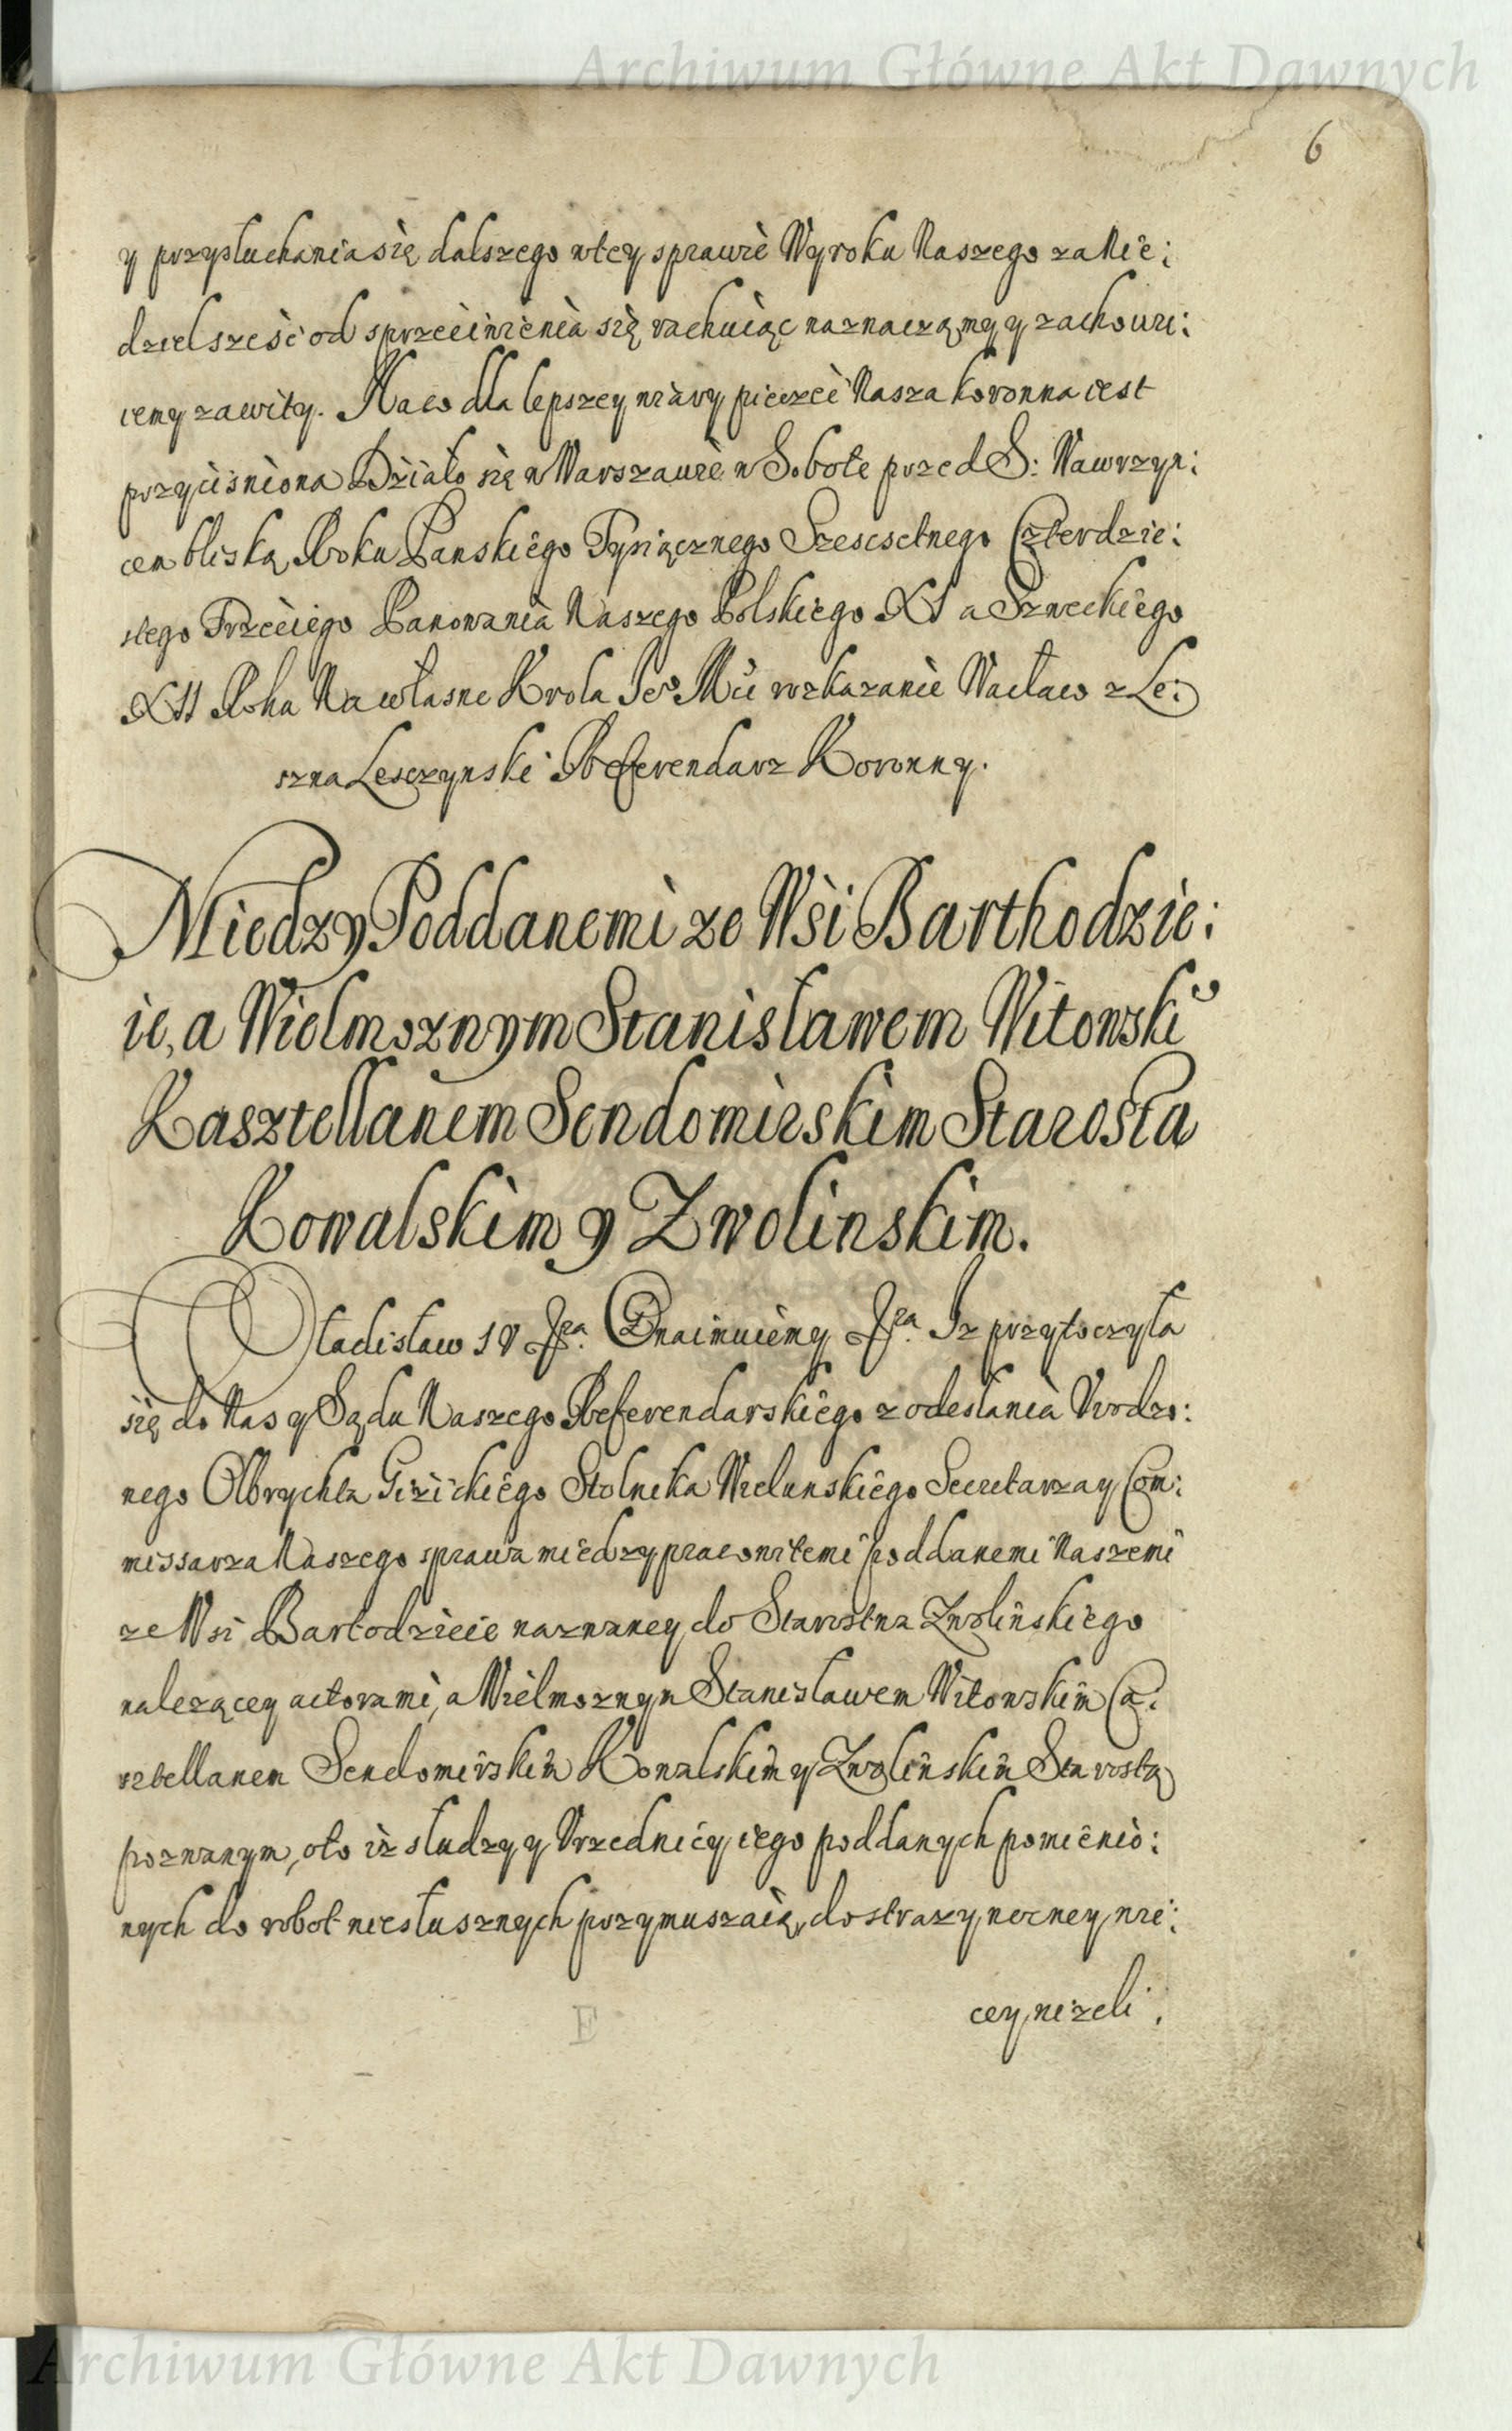 Archiwum Główne Akt Dawnych
6
y przysłuchania się dalszego wtey sprawie Wyroku Naszego za Nie:
dziel sześć od sprzeciwienia się rachuiąc naznaczamy y zachowu:
iemy zawity. Na co dla lepszey wiary pieczęć Nasza koronna iest
przyciśniona Działo się w Warszawie w Sobotę przed S: Wawrzyn:
cem bliską Roku Panskiego Tysiącznego Szescsetnego Czterdzie:
stego Trzeciego Panowania Naszego Polskiego XI a Szweckiego
XII Roku Na własne Krola Je° Mci rozkazanie Wacław z Le:
szna Lesczynski Referendarz Koronny.
Miedzy Poddanemi ze Wsi Barthodzie:
ie, a Wielmoznym Stanisławem Witowski
Kasztellanem Sendomirskim Starosta
Kowalskim y Zwolinskim.
Wladisław IV Jra. Oznaimuiemy Jra. Iz przytoczyła
się do Nas y Sądu Naszego Referendarskiego z odesłania Urodzo:
nego Olbrychta Giżickiego Stolnika Wielunskiego Secretarza y Com:
missarza Naszego sprawa miedzy pracowitemi poddanemi Naszemi
ze Wsi Bartodzieie nazwaney do Starostwa Zwolinskiego
nalezącey actorami, a Wielmoznym Stanisławem Witowskim Ca:
sztellanem Sendomirskim Kowalskim y Zwolinskim Starostą
pozwanym, oto iż słudzy y Urzednicy iego poddanych pomienio:
nych do robot niesłusznych przymuszaią, do strazy nocney, wie:
cey nizeli.
E
Archiwum Główne Akt Dawnych